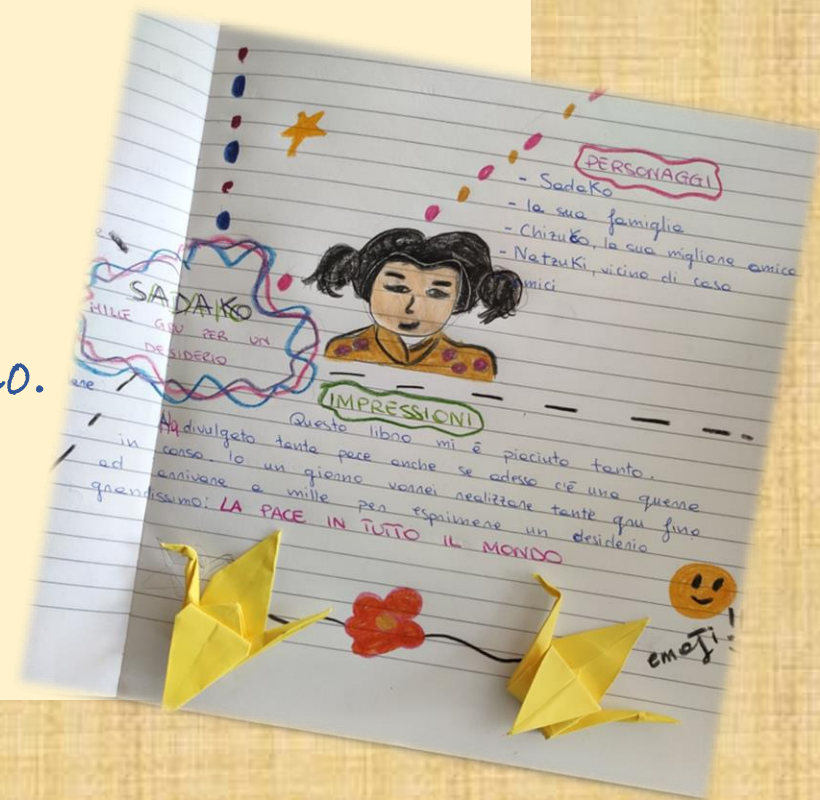 PERSONAGGI
- Sadako
- la sua famiglia
- Chizuko, la sua migliore amica
- Natzuki, vicino di casa
amici
SADAKO
MILLE GRU PER UN
DESIDERIO
o.
IMPRESSIONI
Questo libro mi è piaciuto tanto.
Ha divulgato tanta pace anche se adesso c'è una guerra
in corso. Io un giorno vorrei realizzare tante gru fino
ad arrivare a mille per esprimere un desiderio
grandissimo: LA PACE IN TUTTO IL MONDO
emoji!!